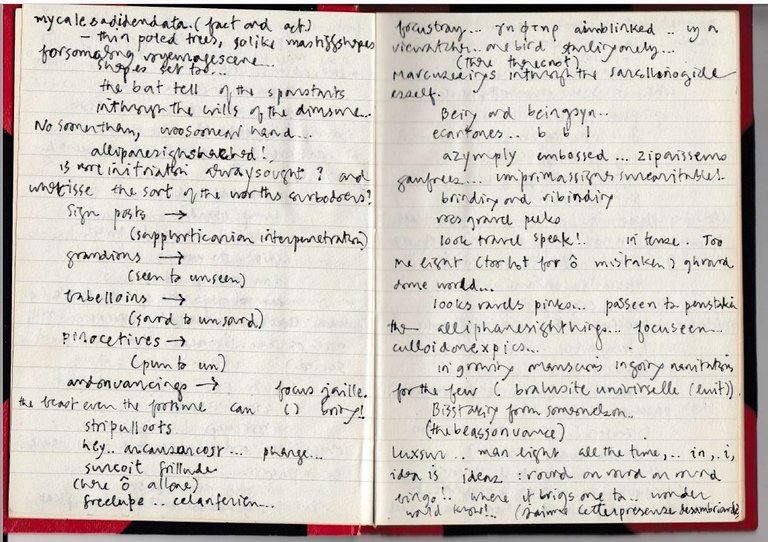 mycalesadihendata. (fact and act)
– thin poted trees, solike mastiffshapes
forsomalong voyeuragescene...
shapes set too...
the bat tell of the sponstants
inthrough the wills of the dimsure...
No soonerthan, woosoonear hand...
alliphanesighsharched!,
is more initriation alwaysought? and
the sort of the worths surbodoers?
sign posts →
(sapphorticanian interpenetration)
grandions →
(seen to unseen)
babelloins →
(sard to unsard)
pinocetives →
(pun to un)
andonvancings → focus jaille.
the beast even the fortime can ( ) briny!
stripulloots
hey.. ancausancost... phange...
suncoit frillude
(where ô allone)
freelupe .. celanferien...
focustray... aimblinked .. in a
viewatcher.. one bird starlingonely...
(there therecnot)
inthrough the
eself.
Being and beingsyn..
ecartones.. b b l
azymply embossed ... zipaissems
gaufrees... umprimassigns
brindiny and vibindiny
rocs gravel pecko
look travel speak!. in tense. Too
me eight (too hot for ô mistaken) ghround
dome world...
looks ravels pinko... passeen to penstakin
the— alliphanesighthings... focuseen...
culloidonexpics...
in gravity manscuris ingoing navitations
for the few ( bralusite universelle (euit)).
Bisstarixy from someonelson..
(the beassonvance)
luxsur .. man eight all the time,.. in, . i,
idea is ideaz : round on round on round
ringo!. where it brings one to.. wonder
world know!.. (j'aime cetterpresense desambriandé)